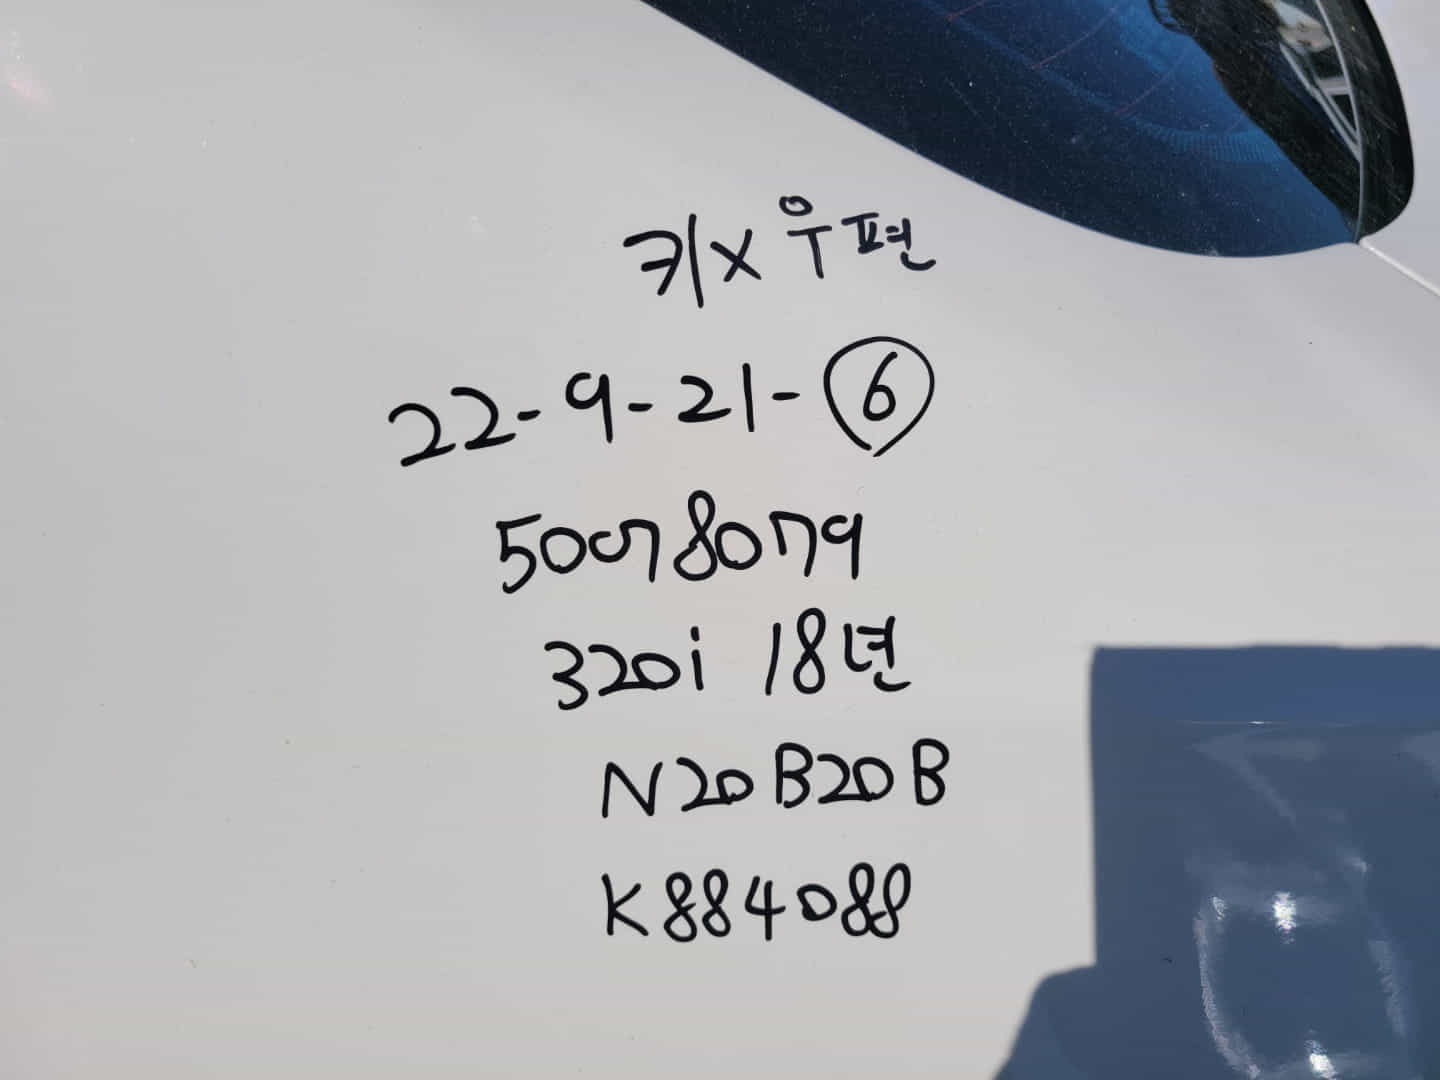 키x 우편
22-9-21-⑥
50078079
320i 18년
N20B20B
K884088